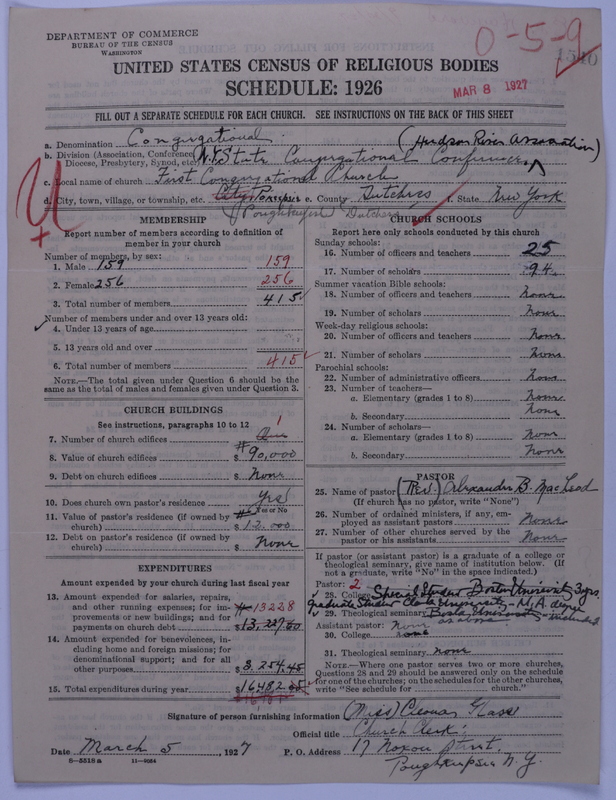 DEPARTMENT OF COMMERCE
BUREAU OF THE CENSUS
WASHINGTON
0-5-9
1540
UNITED STATES CENSUS OF RELIGIOUS BODIES
SCHEDULE: 1926
MAR 8 1927
FILL OUT A SEPARATE SCHEDULE FOR EACH CHURCH. SEE INSTRUCTIONS ON THE BACK OF THIS SHEET
a. Denomination Congregational (Hudson River Association)
b. Division (Association, Conference, Diocese, Presbytery, Synod, etc.) N.Y. State Congregational Conference
c. Local name of church First Congregational Church
d. City, town, village, or township, etc. City e. County Dutchess f. State New York
Poughkeepsie Dutchess
MEMBERSHIP
Report number of members according to definition of member in your church
Number of members, by sex:
1. Male 159 159
2. Female 256 256
3. Total number of members 415
Number of members under and over 13 years old:
4. Under 13 years of age
5. 13 years old and over
6. Total number of members 415
NOTE.—The total given under Question 6 should be the same as the total of males and females given under Question 3.
CHURCH BUILDINGS
See instructions, paragraphs 10 to 12
7. Number of church edifices One 1
8. Value of church edifices $ 90,000
9. Debt on church edifices $ None
10. Does church own pastor's residence Yes
Yes or No
11. Value of pastor's residence (if owned by church) $ 12,000
12. Debt on pastor's residence (if owned by church) $ None
EXPENDITURES
Amount expended by your church during last fiscal year
13. Amount expended for salaries, repairs, and other running expenses; for improvements or new buildings; and for payments on church debt $ 13,227.60 13228
14. Amount expended for benevolences, including home and foreign missions; for denominational support; and for all other purposes $ 3,254.45
15. Total expenditures during year $ 16482
CHURCH SCHOOLS
Report here only schools conducted by this church
Sunday schools:
16. Number of officers and teachers 25
17. Number of scholars 94
Summer vacation Bible schools:
18. Number of officers and teachers None
19. Number of scholars None
Week-day religious schools:
20. Number of officers and teachers None
21. Number of scholars None
Parochial schools:
22. Number of administrative officers None
23. Number of teachers—
a. Elementary (grades 1 to 8) None
b. Secondary None
24. Number of scholars—
a. Elementary (grades 1 to 8) None
b. Secondary None
PASTOR
25. Name of pastor (Rev.) Alexander B. MacLeod
(If church has no pastor, write "None")
26. Number of ordained ministers, if any, employed as assistant pastors None
27. Number of other churches served by the pastor or his assistants None
If pastor (or assistant pastor) is a graduate of a college or theological seminary, give name of institution below. (If not a graduate, write "No" in the space indicated.)
Pastor: 2
28. College Special Student Boston University 3 yrs.
Graduate Student Clark University - M.A. degree
29. Theological seminary Boston University
Assistant pastor: None as above
30. College none
31. Theological seminary none
NOTE.—Where one pastor serves two or more churches, Questions 28 and 29 should be answered only on the schedule for one of the churches; on the schedules for the other churches, write "See schedule for ______ church."
Signature of person furnishing information (Miss)
Official title Church Clerk
Date March 5, 1927 P. O. Address 17 Noxon Street.
8-5518 a 11-9034
Poughkeepsie N.Y.